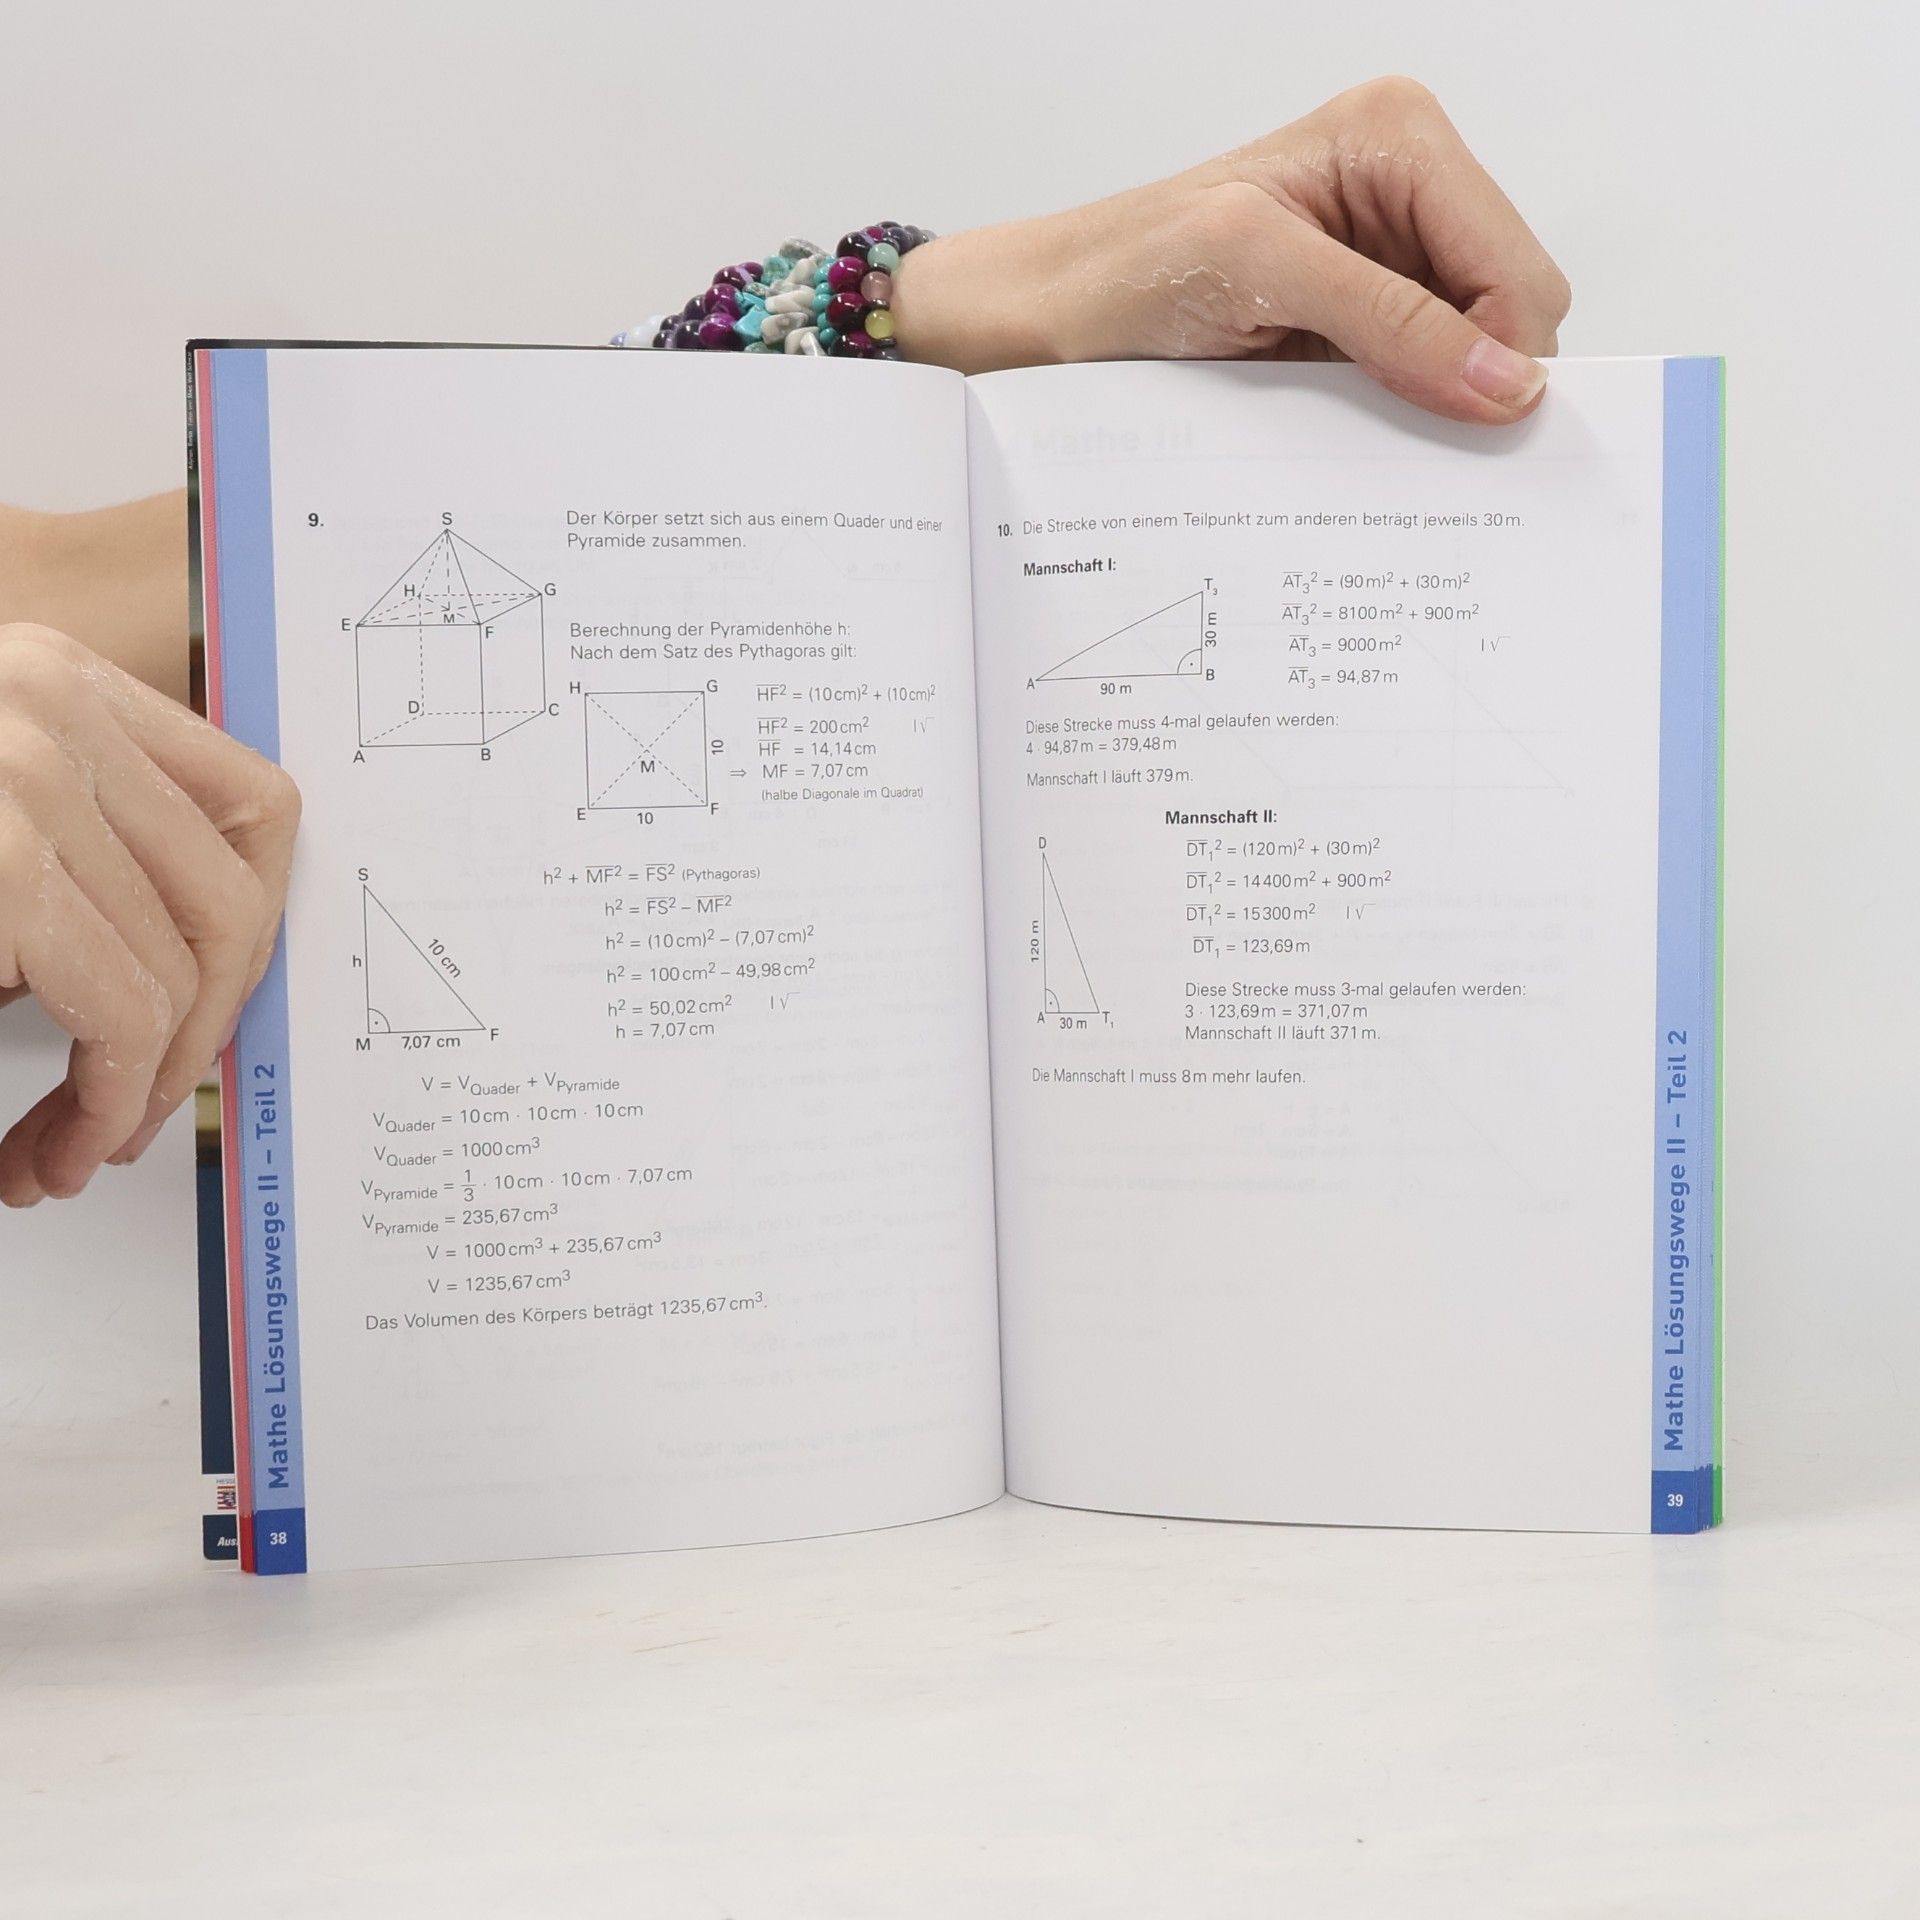 9.
S
H
G
E
M
F
D
C
A
B
Der Körper setzt sich aus einem Quader und einer
Pyramide zusammen.
Berechnung der Pyramidenhöhe h:
Nach dem Satz des Pythagoras gilt:
H
G
M
10
E
F
10
HF² = (10 cm)² + (10 cm)²
HF² = 200 cm² | √
HF = 14,14 cm
⇒ MF = 7,07 cm
(halbe Diagonale im Quadrat)
S
h
10 cm
M
7,07 cm
F
h² + MF² = FS² (Pythagoras)
h² = FS² – MF²
h² = (10 cm)² – (7,07 cm)²
h² = 100 cm² – 49,98 cm²
h² = 50,02 cm² | √
h = 7,07 cm
V = V Quader + V Pyramide
V Quader = 10 cm · 10 cm · 10 cm
V Quader = 1000 cm³
V Pyramide = 1/3 · 10 cm · 10 cm · 7,07 cm
V Pyramide = 235,67 cm³
V = 1000 cm³ + 235,67 cm³
V = 1235,67 cm³
Das Volumen des Körpers beträgt 1235,67 cm³.
Mathe Lösungswege II – Teil 2
38
10. Die Strecke von einem Teilpunkt zum anderen beträgt jeweils 30 m.
Mannschaft I:
T₃
30 m
A
B
90 m
AT₃² = (90 m)² + (30 m)²
AT₃² = 8100 m² + 900 m²
AT₃ = 9000 m² | √
AT₃ = 94,87 m
Diese Strecke muss 4-mal gelaufen werden:
4 · 94,87 m = 379,48 m
Mannschaft I läuft 379 m.
Mannschaft II:
D
120 m
A
30 m
T₁
DT₁² = (120 m)² + (30 m)²
DT₁² = 14400 m² + 900 m²
DT₁² = 15300 m² | √
DT₁ = 123,69 m
Diese Strecke muss 3-mal gelaufen werden:
3 · 123,69 m = 371,07 m
Mannschaft II läuft 371 m.
Die Mannschaft I muss 8 m mehr laufen.
Mathe Lösungswege II – Teil 2
39